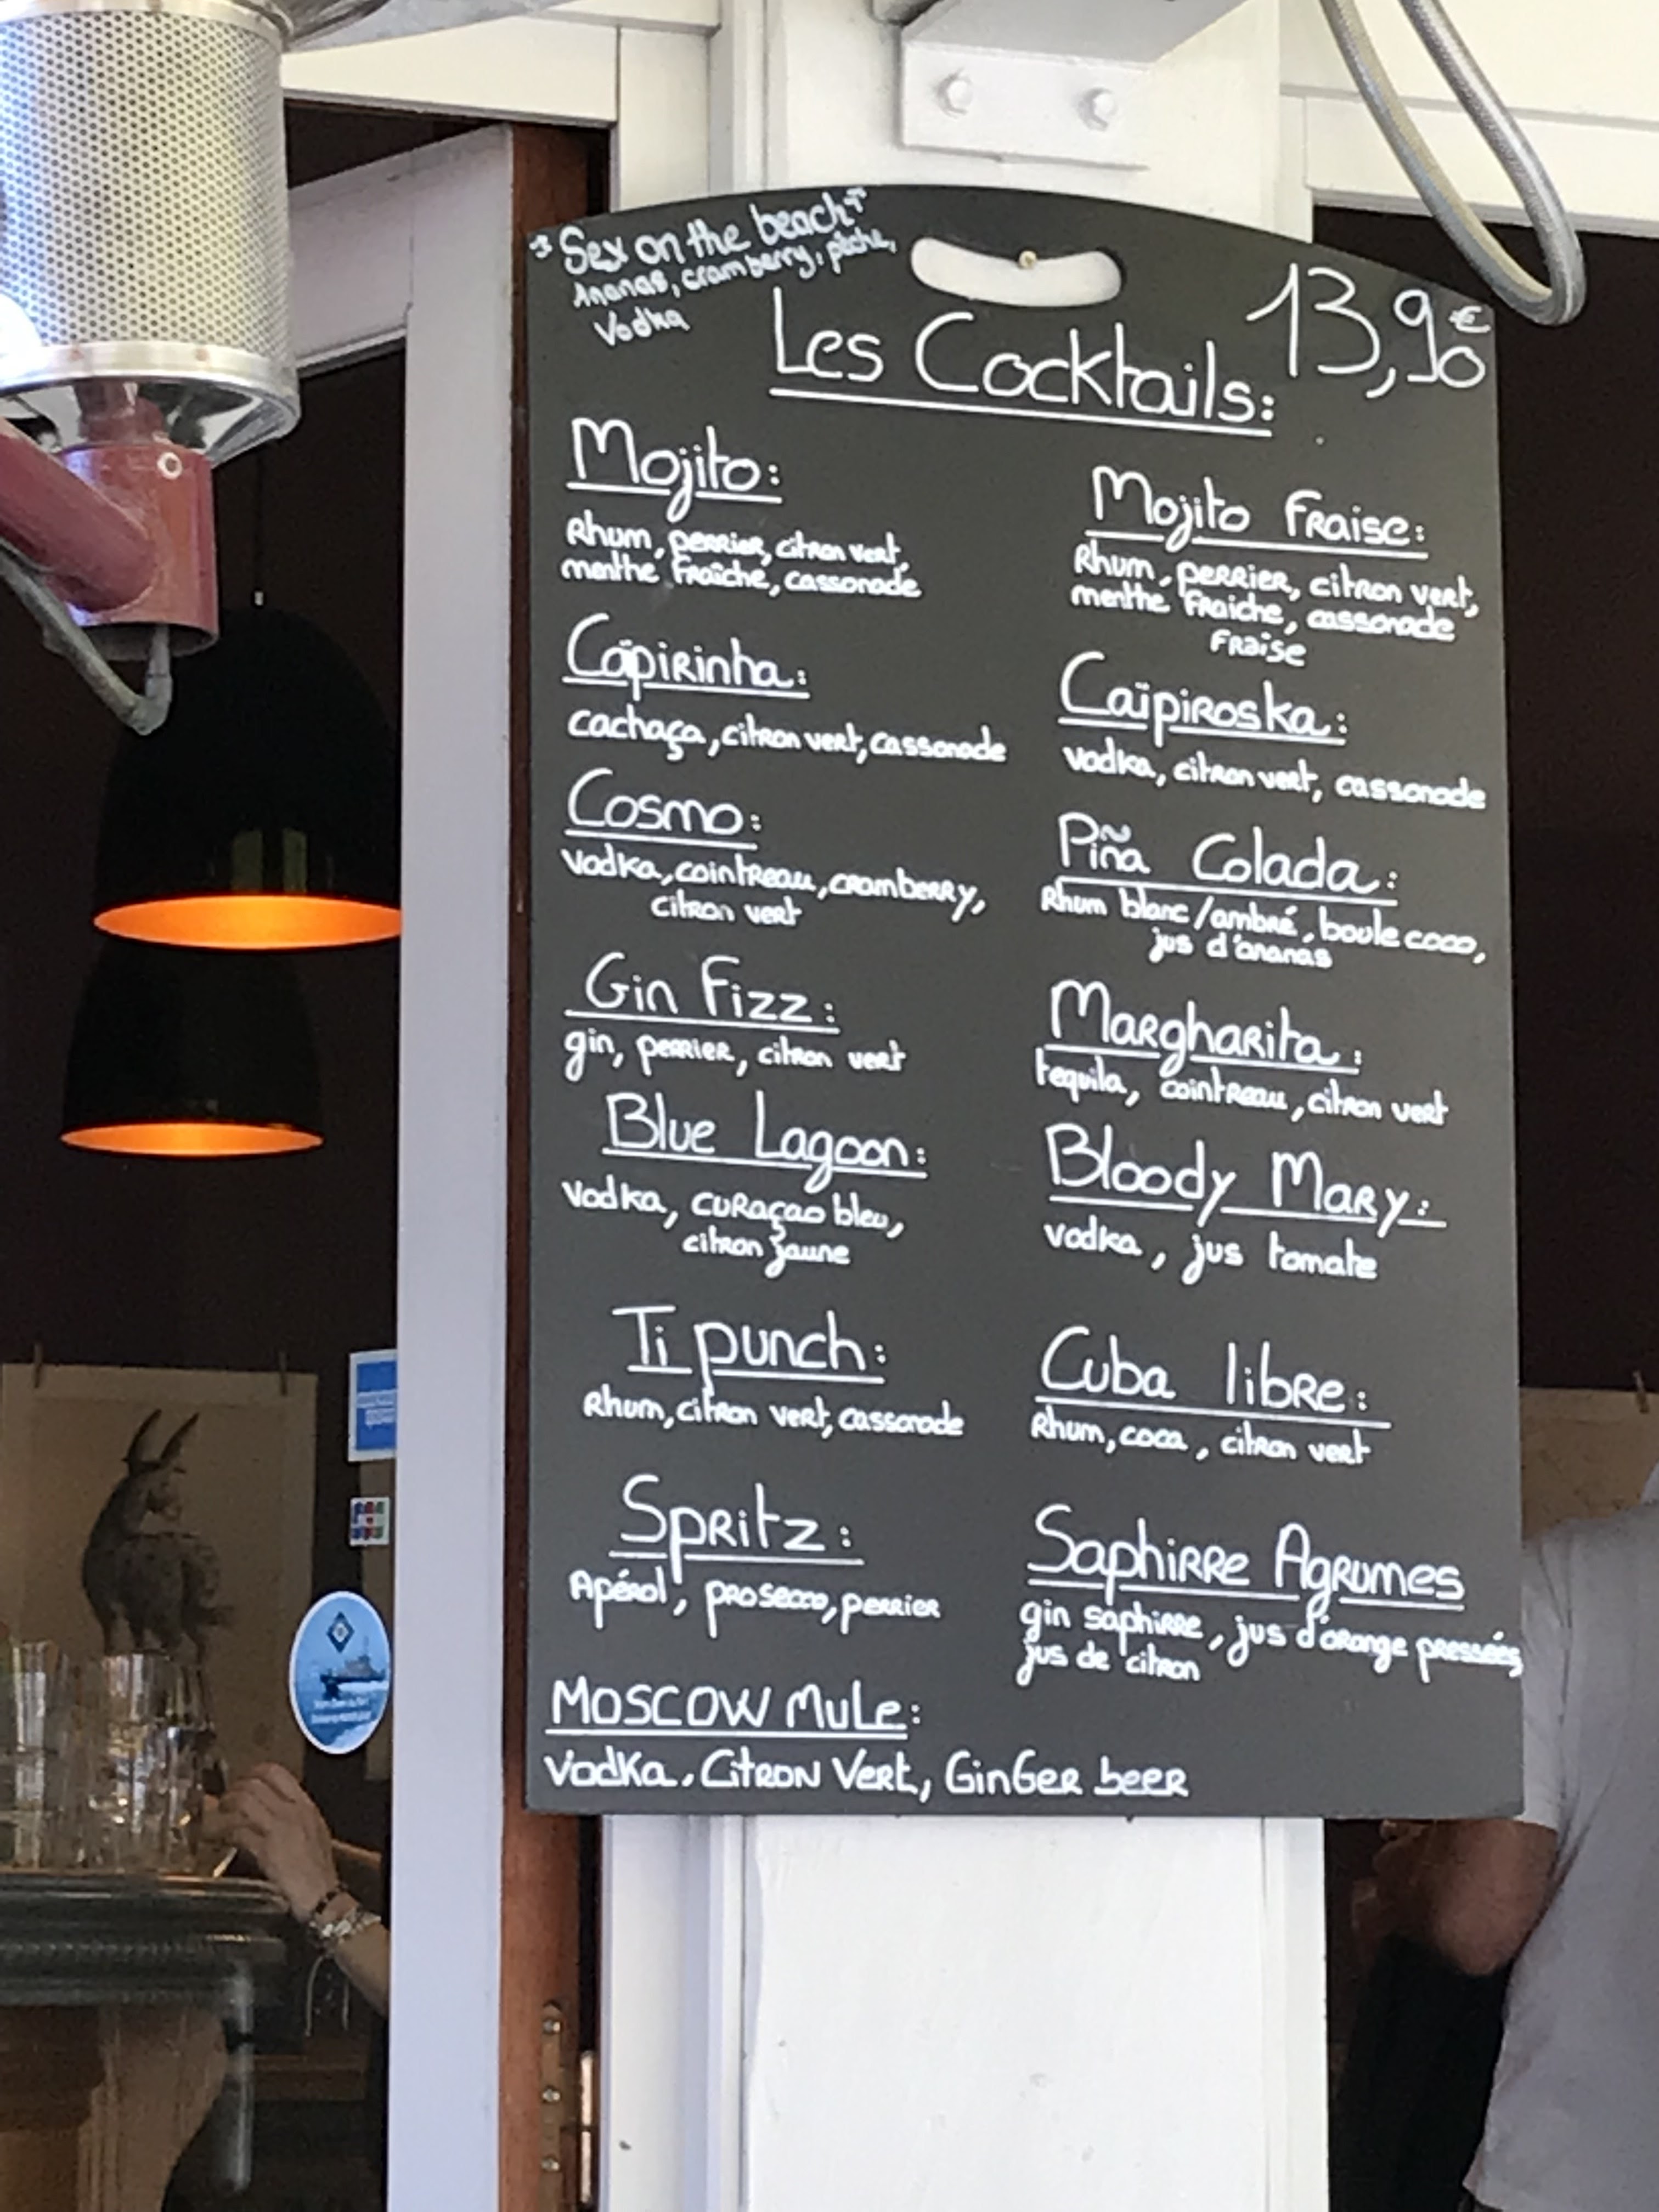 Sex on the beach
Ananas, cramberry, pêche,
Vodka
Les Cocktails:
13,90€
Mojito:
Rhum, perrier, citron vert,
menthe fraîche, cassonade
Caïpirinha:
cachaça, citron vert, cassonade
Cosmo:
Vodka, cointreau, cramberry,
citron vert
Gin Fizz:
gin, perrier, citron vert
Blue Lagoon:
Vodka, curaçao bleu,
citron jaune
Ti punch:
Rhum, citron vert, cassonade
Spritz:
Apérol, prosecco, perrier
Moscow Mule:
Vodka, Citron Vert, Ginger beer
Mojito Fraise:
Rhum, perrier, citron vert,
menthe fraiche, cassonade
Fraise
Caïpiroska:
vodka, citron vert, cassonade
Piña Colada:
Rhum blanc/ambré, boule coco,
jus d'ananas
Margharita:
tequila, cointreau, citron vert
Bloody Mary:
vodka, jus tomate
Cuba libre:
Rhum, coca, citron vert
Saphirre Agrumes
gin saphirre, jus d'orange pressées,
jus de citron